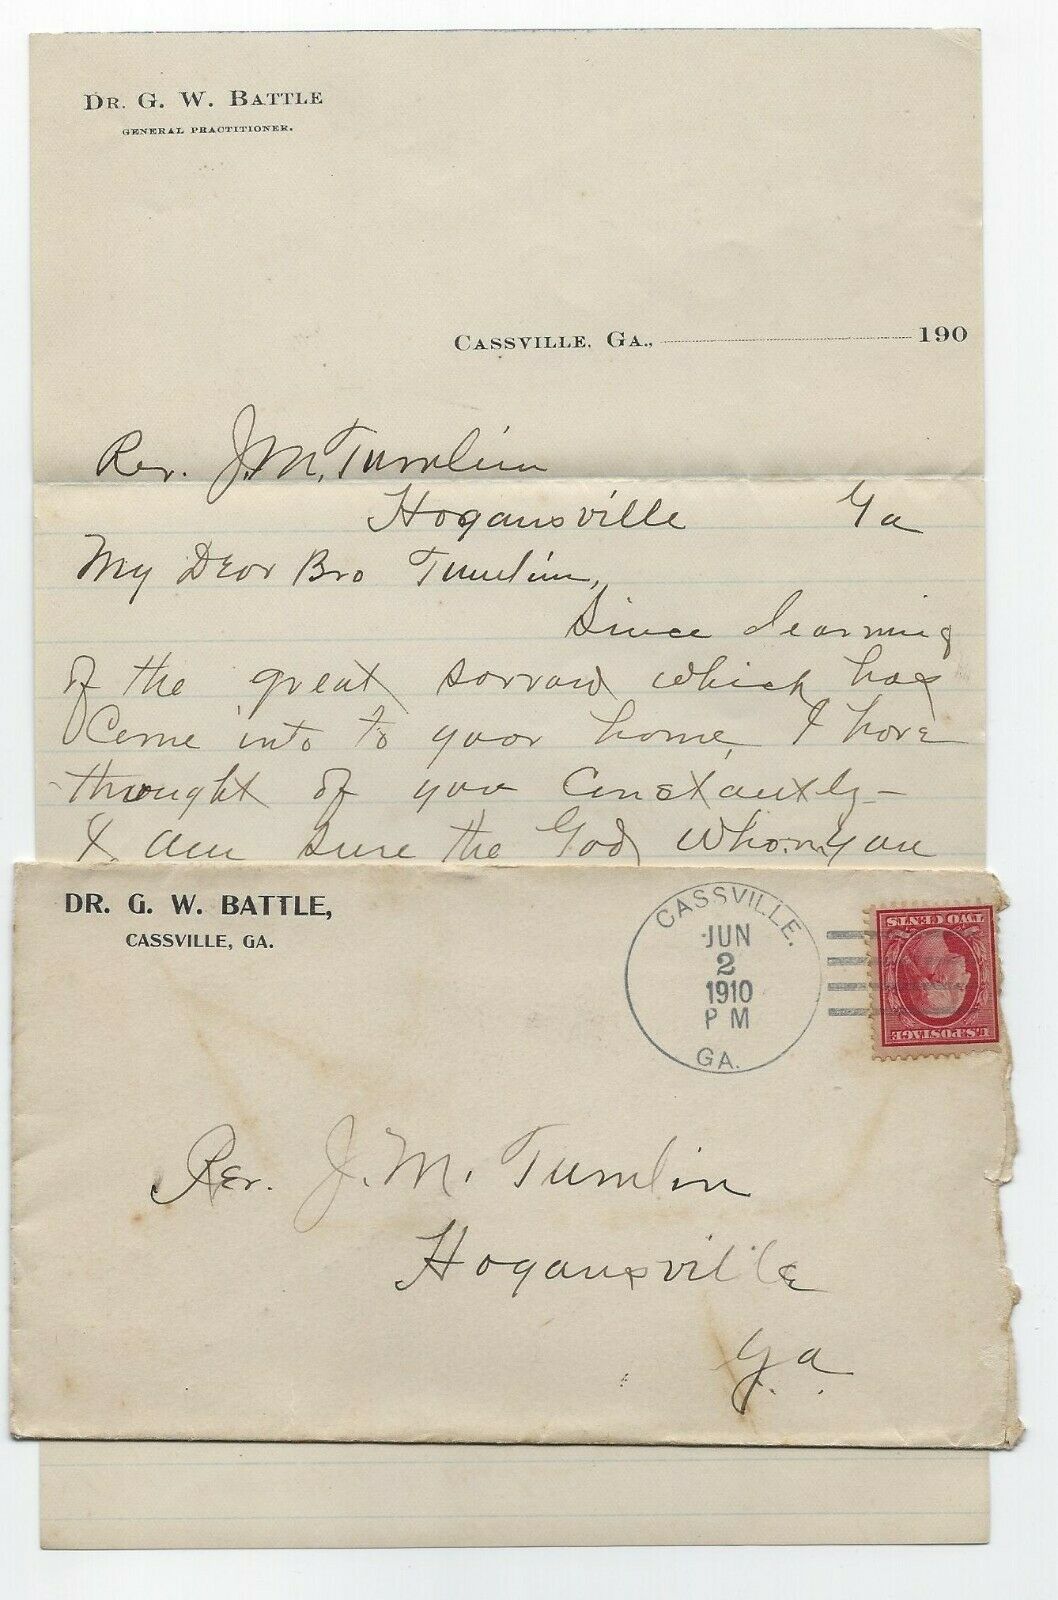 DR. G. W. BATTLE
GENERAL PRACTITIONER.
CASSVILLE, GA., 190
Rev. J. M. Tumlin
Hogansville Ga
My Dear Bro Tumlin,
Since learning
of the great sorrow which has
Come into to your home, I have
thought of you Constantly—
I am sure the God whom you
DR. G. W. BATTLE,
CASSVILLE, GA.
CASSVILLE.
JUN
2
1910
PM
GA.
TWO CENTS
U.S. POSTAGE
Rev. J. M. Tumlin
Hogansville
Ga.